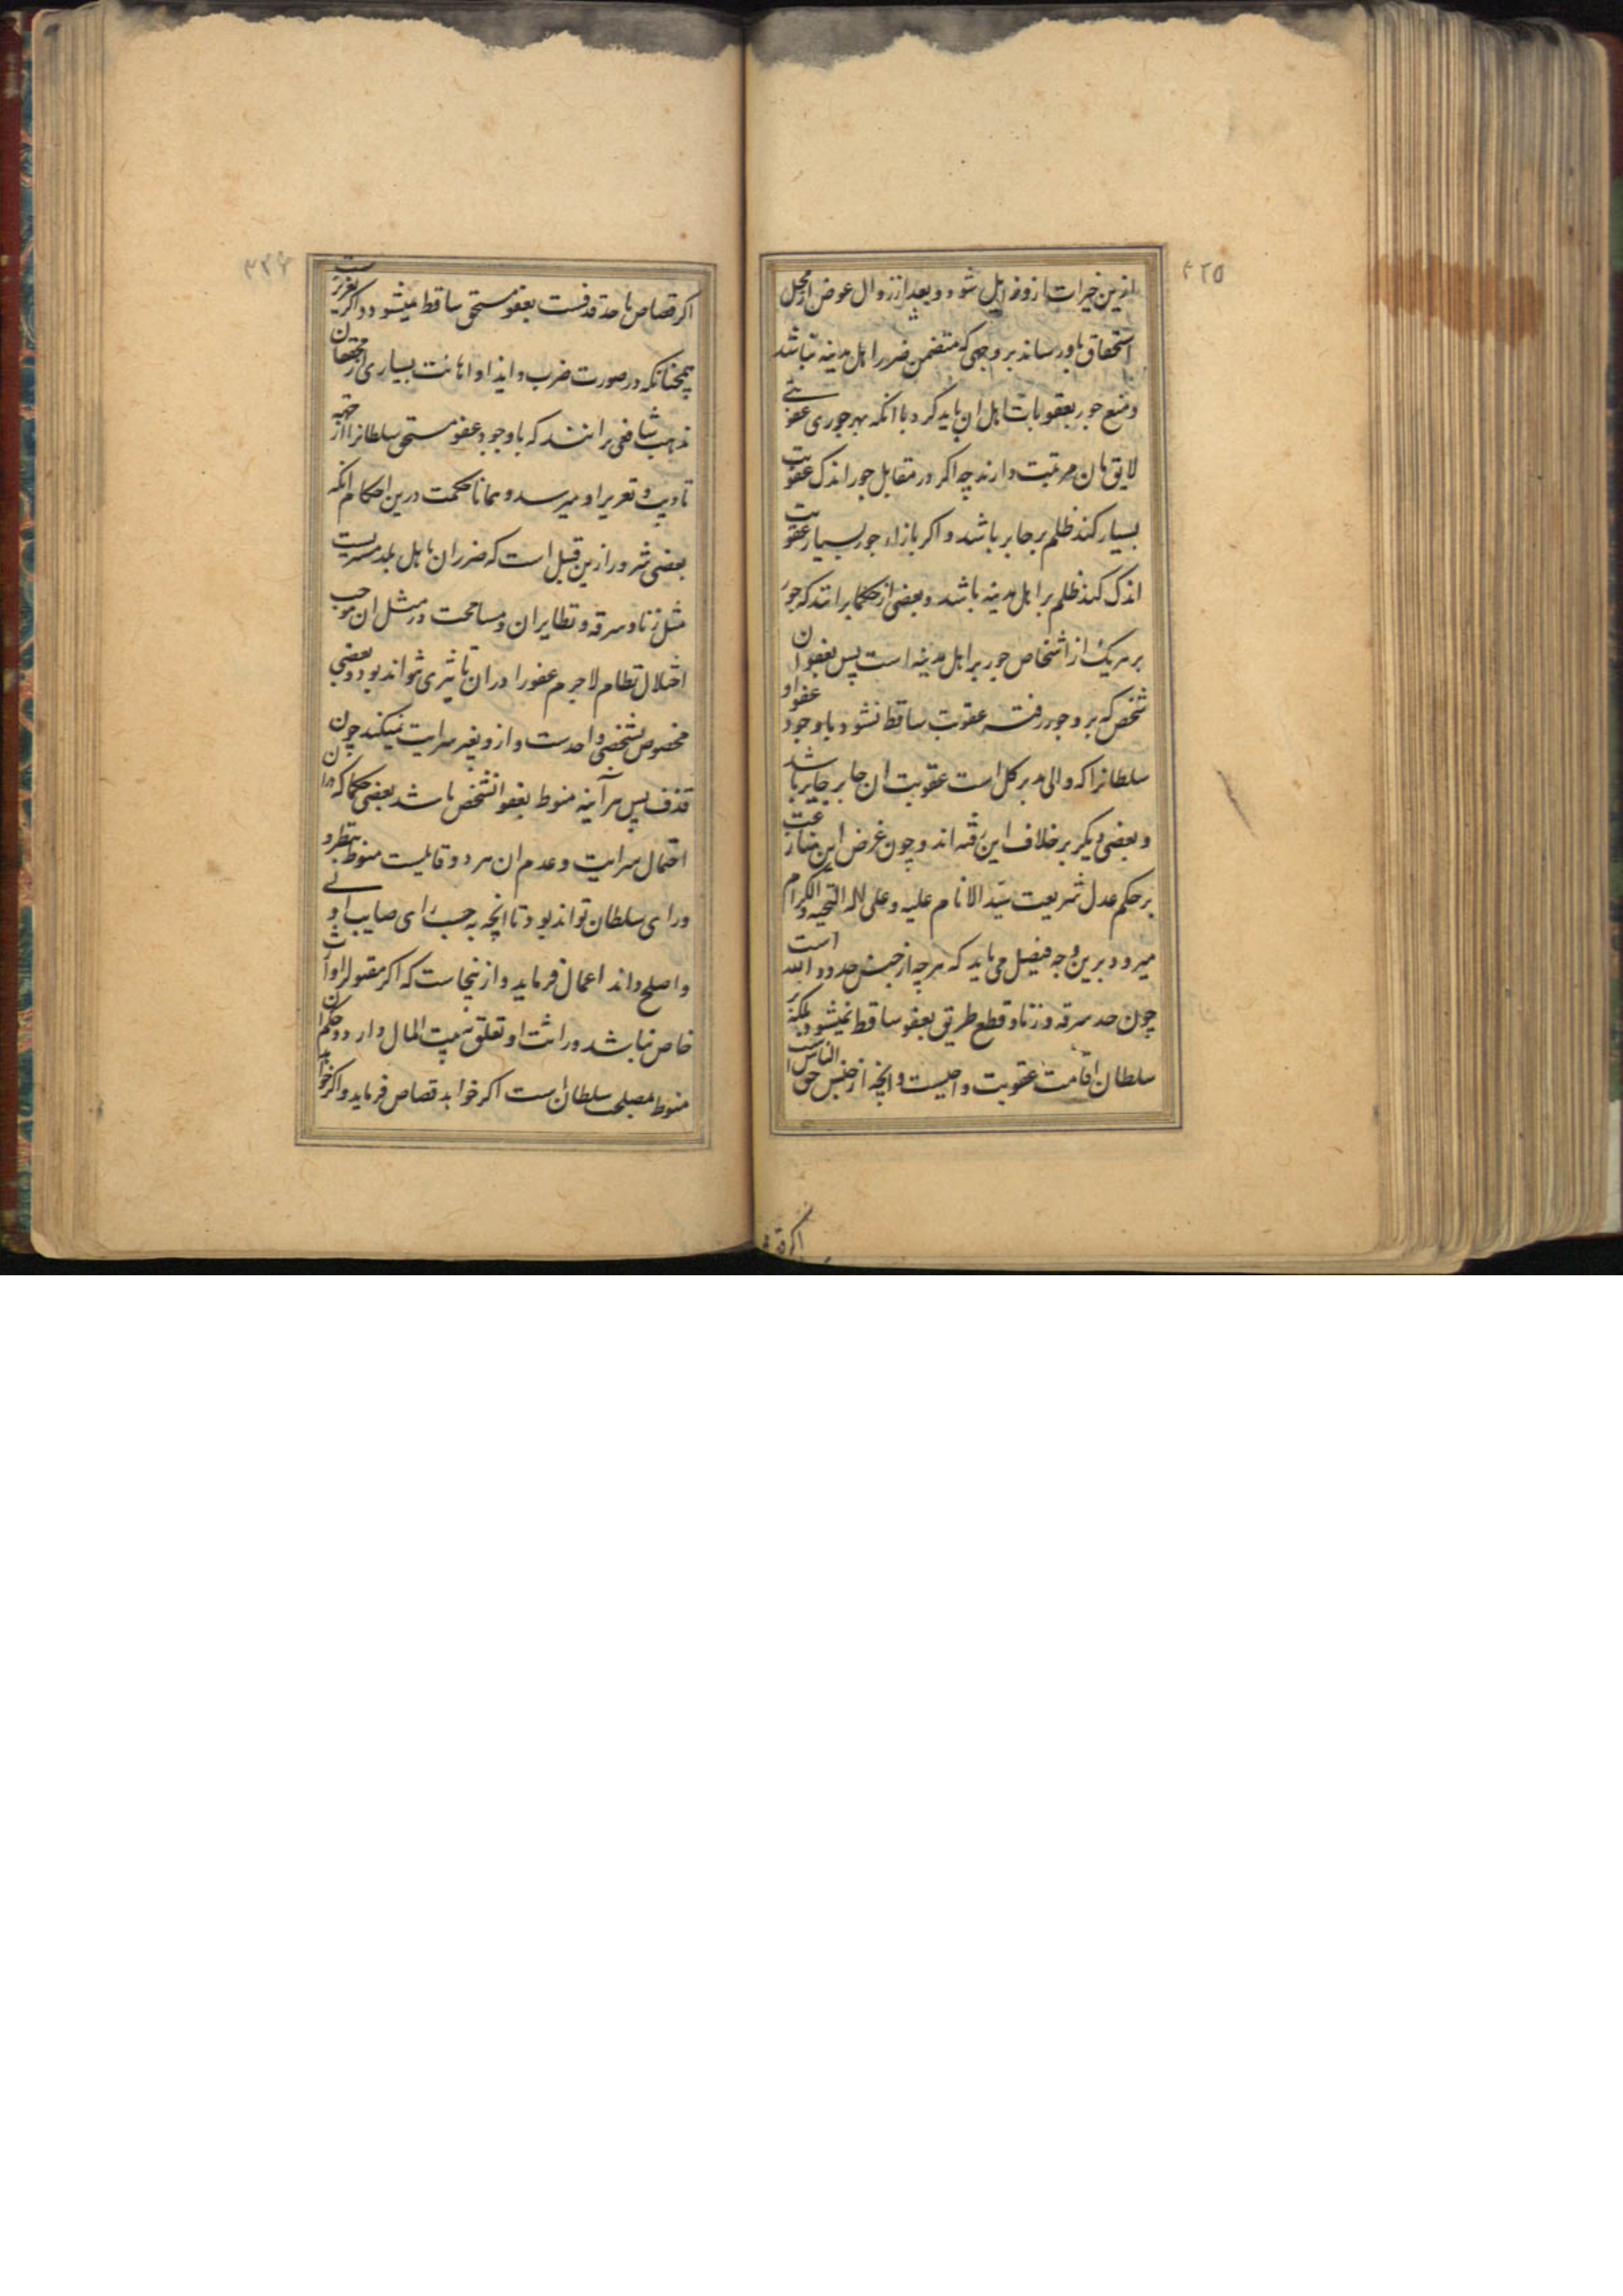 ۴۲۵
ازین خیرات ازو زایل شود و بعد از زوال عوض از محل
استحقاق باو رساند بر وجهی که متضمن ضرر اهل مدینه نباشد
و منع جور بعقوبات اهل ان باید کرد با انکه بهر جوری عقوبتی
لایق بان مرتبت دارند چه اکر در مقابل جور اندک عقوبت
بسیار کنند ظلم بر جابر باشد و اکر بازاء جور بسیار عقوبت
اندک کنند ظلم بر اهل مدینه باشد و بعضی از حکما برانند که جور
بر هریک از اشخاص جور بر اهل مدینه است پس بعفو ان
شخص که برو جور رفته عقوبت ساقط نشود با وجود عفو او
سلطانرا که والی مدبر کل است عقوبت ان جابر جایز باشد
و بعضی دیکر بر خلاف این رفته اند و چون غرض این منازعت
بر حکم عدل شریعت سید الانام علیه و علی اله التحیة و الکرام
میرود برین وجه فیصل می یابد که هرچه از جنس حدود الله است
چون حد سرقه و زنا و قطع طریق بعفو ساقط نمیشود بلکه بر
سلطان اقامت عقوبت واجبست و انچه از جنس حق الناس است
اکر قصاص
۴۲۶
اکر قصاص یا حد قذفست بعفو مستحق ساقط میشود و اکر تعزیرست
همچنانکه در صورت ضرب و ایذا و اهانت بسیاری از محققان
مذهب شافعی برانند که با وجود عفو مستحق سلطانرا از جهة
تادیب و تعزیر او میرسد و همانا حکمت درین احکام انکه
بعضی شرور ازین قبیل است که ضرر ان باهل بلد مسریست
مثل زنا و سرقه و نظایر ان و مسامحت در مثل ان موجب
اختلال نظام لاجرم عفو را دران تاثیری نتواند بود و بعضی
مخصوص بشخصی واحدست و ازو بغیر سرایت نمیکند چون
قذف پس هر آینه منوط بعفو انشخص باشد بعضی حکما که دران
احتمال سرایت و عدم ان هر دو قابلیست منوط بنظر و
ورای سلطان تواند بود تا انچه بحسب رای صایب اولی
و اصلح داند اعمال فرماید و ازینجاست که اکر مقتول را وارث
خاص نباشد وراثت او تعلق به بیت المال دارد و حکم ان
منوط بمصلحت سلطان است اکر خواهد قصاص فرماید و اکر خواهد